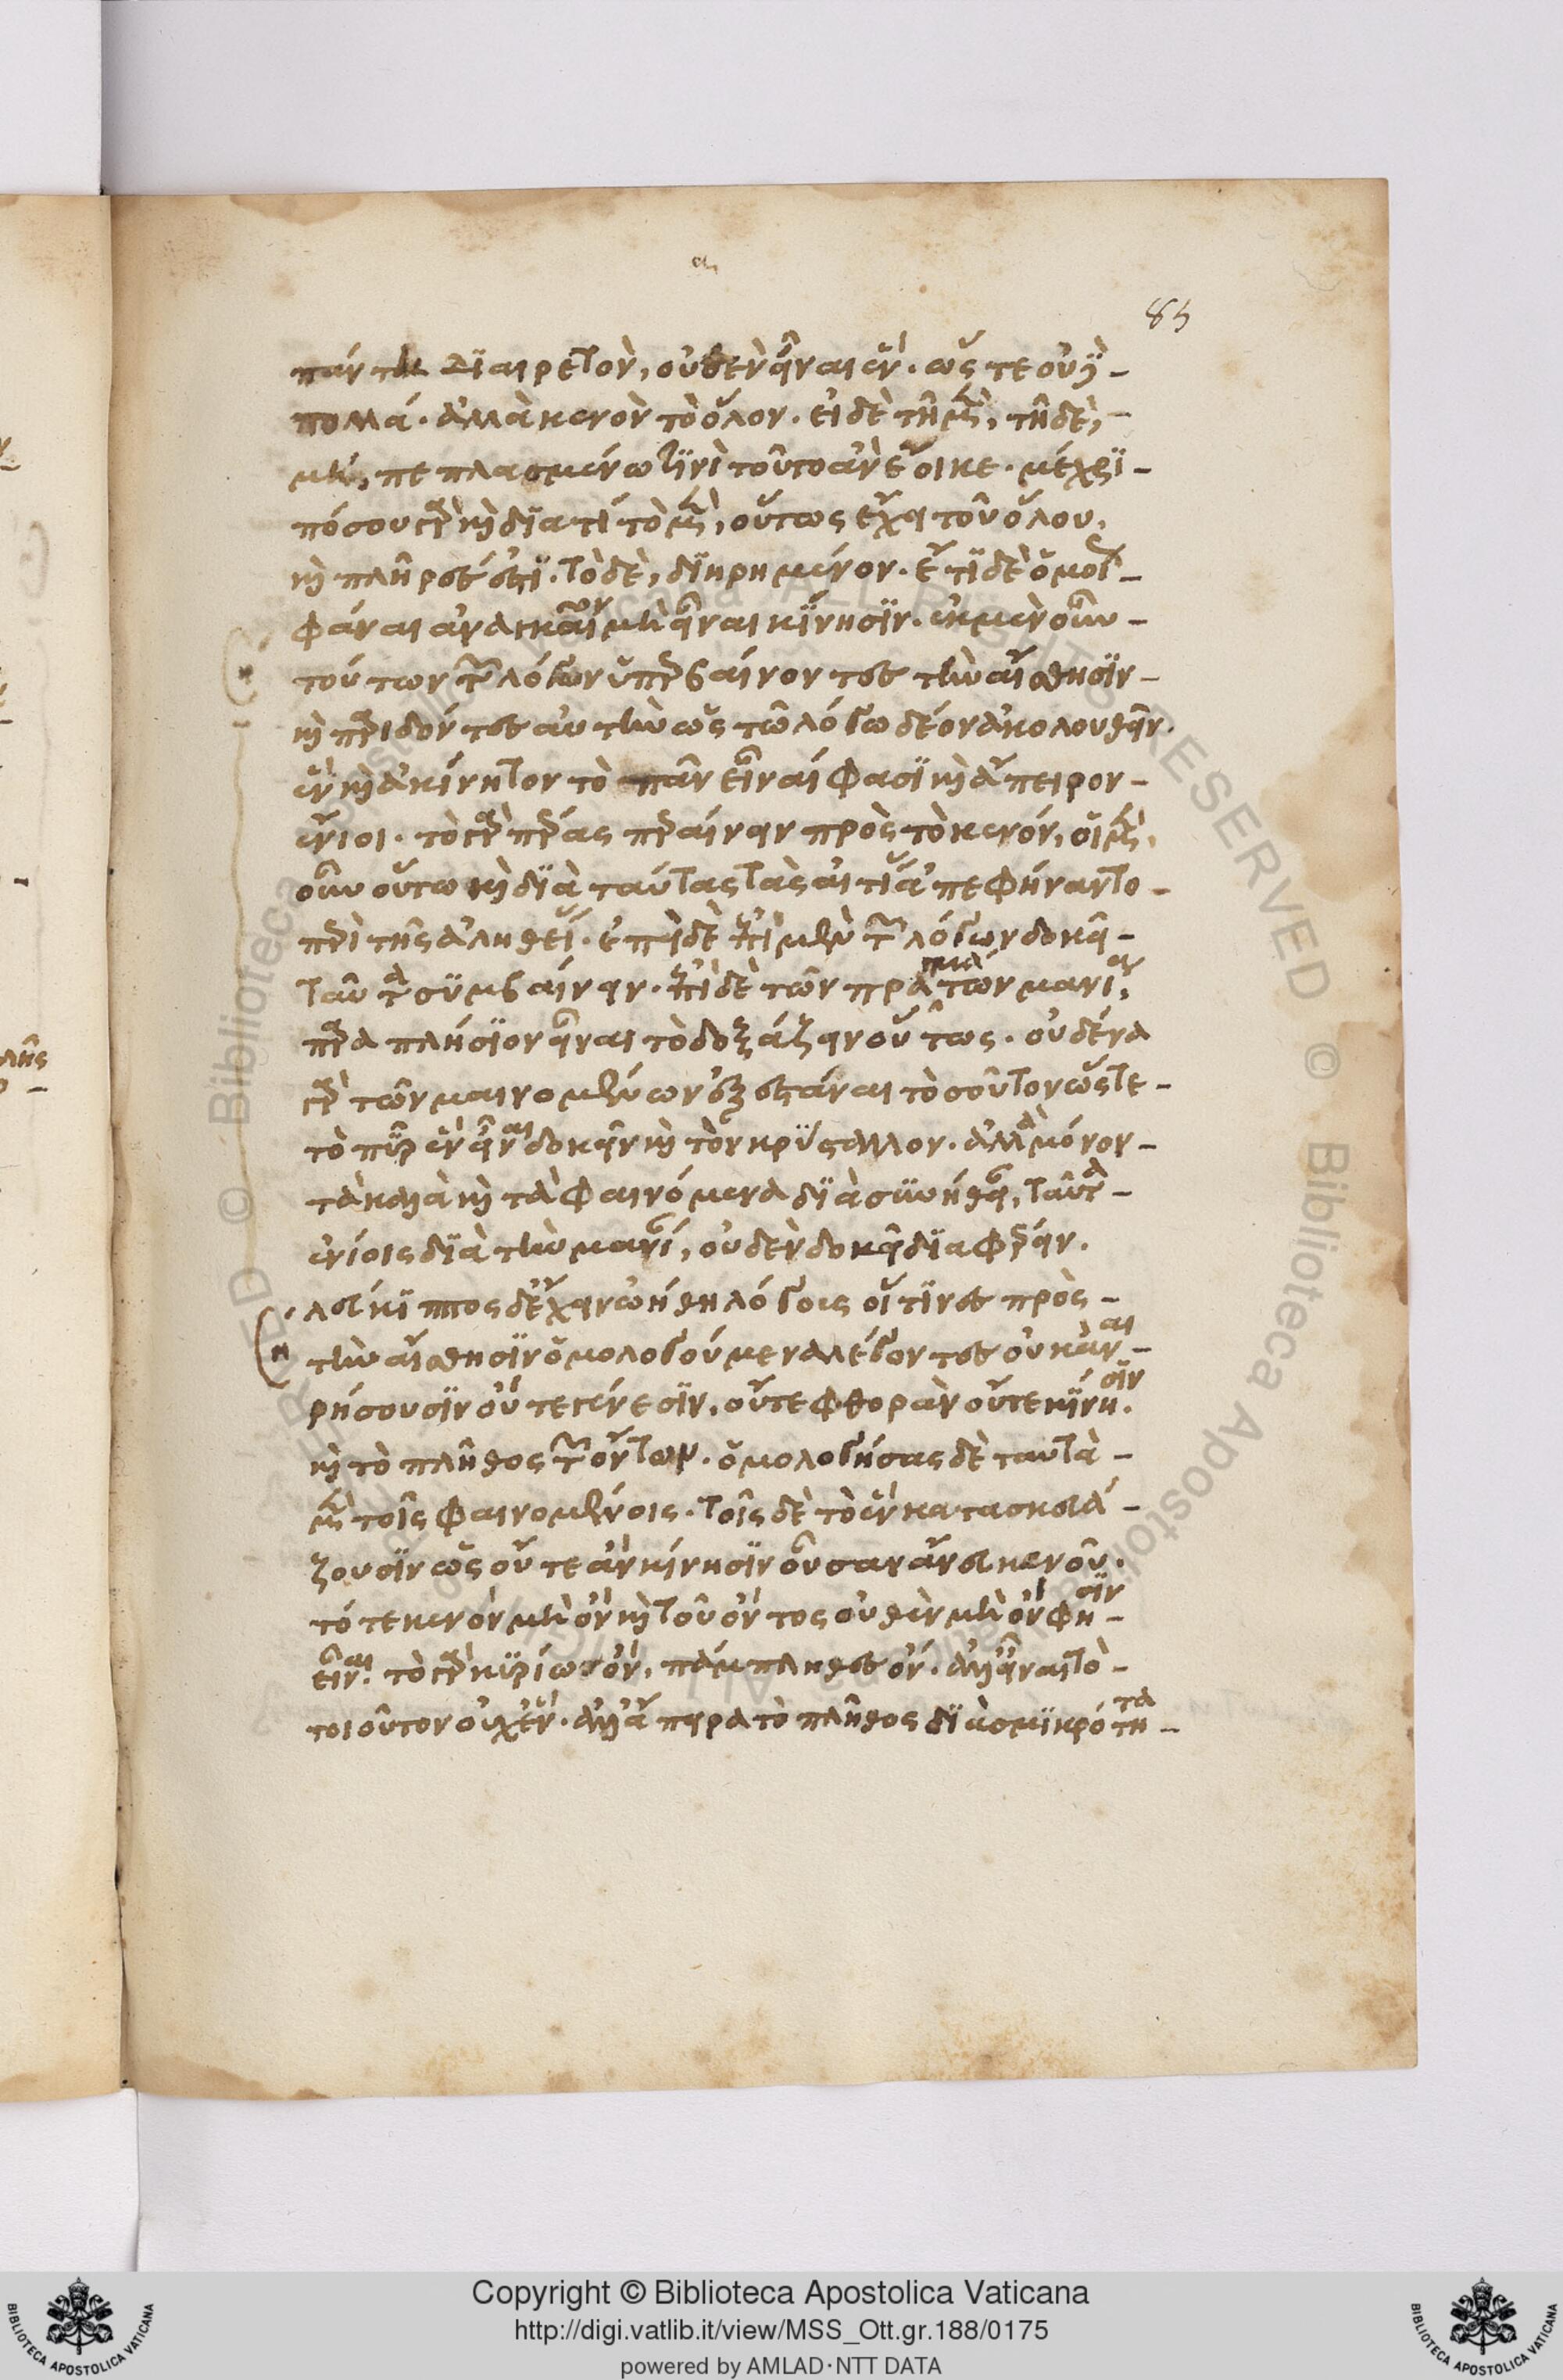 α
85
πάντη διαιρετὸν, οὐθὲν εἶναι ἓν. ὥστε οὐδὲ
πολλά. ἀλλὰ κενὸν τὸ ὅλον. εἰ δὲ τῆ μὲν, τῆ δὲ,
μὴ, πεπλασμένω τινὶ τοῦτο ἂν ἐοικε. μέχρι
πόσου γὰρ καὶ διατί τὸ μὲν, οὕτως ἔχει τοῦ ὅλου,
καὶ πλῆρές ἐστι. τὸ δὲ, διηρημένον. ἔτι δὲ ὁμοίως
φάναι ἀναγκαῖον μὴ εἶναι κίνησιν. ἐκ μὲν οὖν
τούτων τῶν λόγων ὑπερβαίνοντες τὴν αἴσθησιν
καὶ παριδόντες αὐτὴν ὡς τῶ λόγω δέον ἀκολουθεῖν.
ἓν καὶ ἀκίνητον τὸ πᾶν εἶναί φασι καὶ ἄπειρον
ἔνιοι. τὸ γὰρ πέρας περαίνειν πρὸς τὸ κενόν. οἱ μὲν
οὖν οὕτω καὶ διὰ ταύτας τὰς αἰτίας ἀπεφήναντο
περὶ τῆς ἀληθείας. ἐπεὶ δὲ ἐπὶ μὲν τῶν λόγων δοκεῖ
ταῦτα συμβαίνειν. ἐπὶ δὲ τῶν πραγμάτων μανία
παραπλήσιον εἶναι τὸ δοξάζειν οὕτως. οὐδένα
γὰρ τῶν μαινομένων ἐξεστάναι τοσοῦτον ὥστε
τὸ πῦρ ἓν εἶναι δοκεῖν καὶ τὸν κρύσταλλον. ἀλλὰ μόνον
τὰ καλὰ καὶ τὰ φαινόμενα διὰ συνήθειαν, ταῦτα
ἐνίοις διὰ τὴν μανίαν, οὐδὲν δοκεῖ διαφέρειν.
λεύκιππος δ' ἔχειν ὠήθη λόγοις οἵτινες πρὸς
τὴν αἴσθησιν ὁμολογούμενα λέγοντες οὐκ ἀναι
ρήσουσιν οὔτε γένεσιν, οὔτε φθορὰν οὔτε κίνησιν.
καὶ τὸ πλῆθος τῶν ὄντων. ὁμολογήσας δὲ ταυτὰ
μὲν τοῖς φαινομένοις. τοῖς δὲ τὸ ἓν κατασκευά
ζουσιν ὡς οὔτε ἂν κίνησιν οὖσαν ἄνευ κενοῦ.
τό τε κενὸν μὴ ὂν καὶ τοῦ ὄντος οὐθὲν μὴ ὂν φησιν
εἶναι. τὸ γὰρ κυρίως ὂν, παμπληθὲς ὄν. ἀλλ' εἶναι τὸ
τοιοῦτον οὐχ ἓν. ἀλλ' ἄπειρα τὸ πλῆθος διὰ σμικρότητα